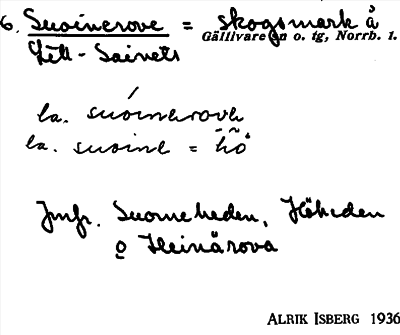 6. Suoinerove = skogsmark å
Gällivare sn o. tg, Norrb. l.
Lett-Sainets
la. suoinerova
la. suoine = hö
Jmfr. Suomeheden, Höheden
o Heinärova
ALRIK ISBERG 1936